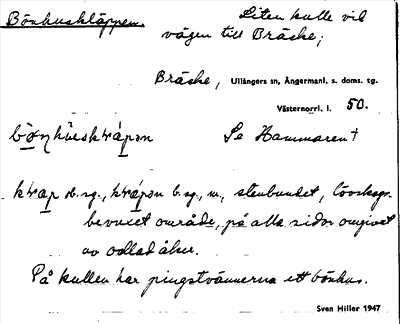 Bönhuskläppen.
Liten kulle vid
vägen till Bräske;
Bräske, Ullångers sn, Ångermanl. s. doms. tg.
Västernorrl. l. 50.
Se Hammaren †
ob. sg., b. sg., m., stenbundet, lövskogs-
bevuxet område, på alla sidor omgivet
av odlad åker.
På kullen har pingstvännerna ett bönhus.
Sven Hiller 1947